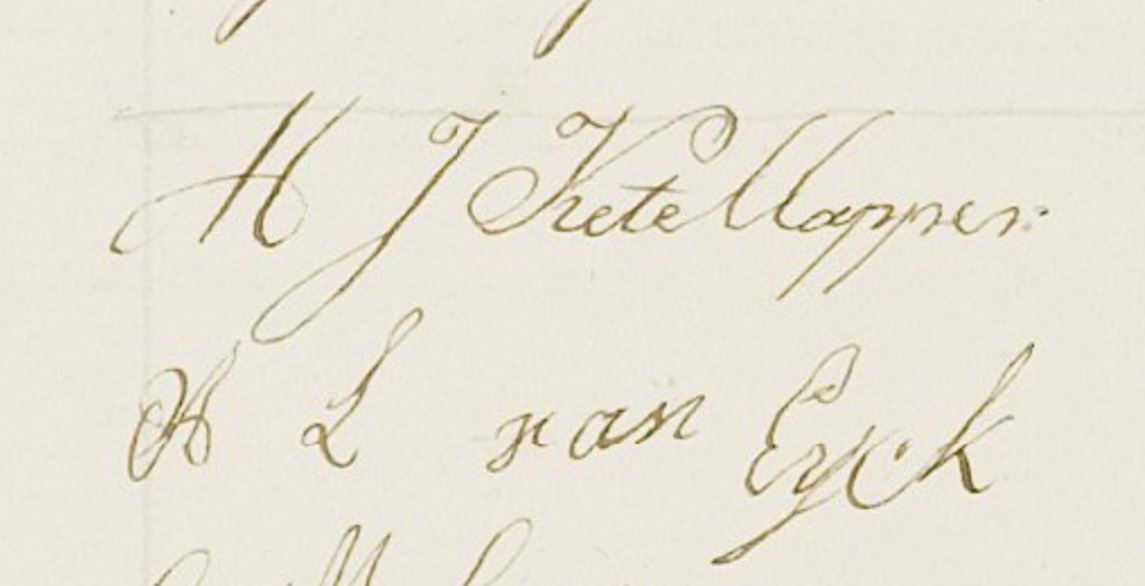 H J Ketellapper
H L van Eyck